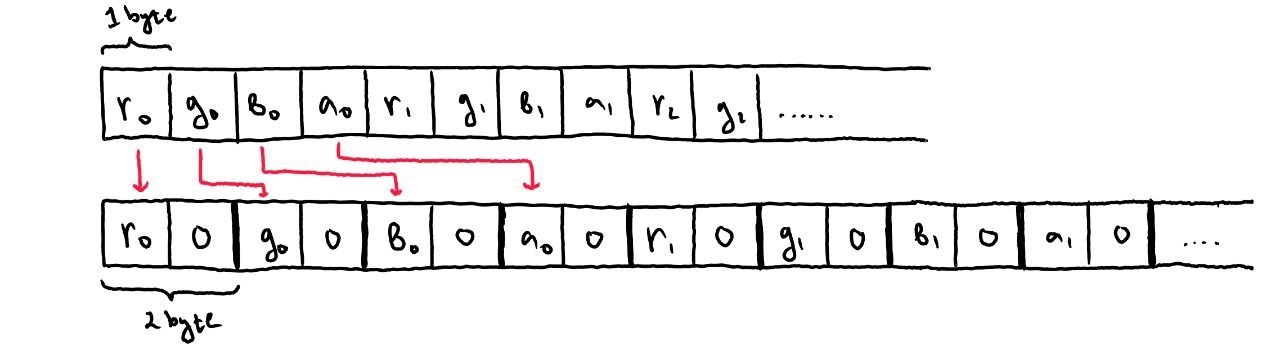 1 byte
r₀ g₀ B₀ a₀ r₁ g₁ B₁ a₁ r₂ g₂ ......
r₀ 0 g₀ 0 B₀ 0 a₀ 0 r₁ 0 g₁ 0 B₁ 0 a₁ 0 ....
2 byte